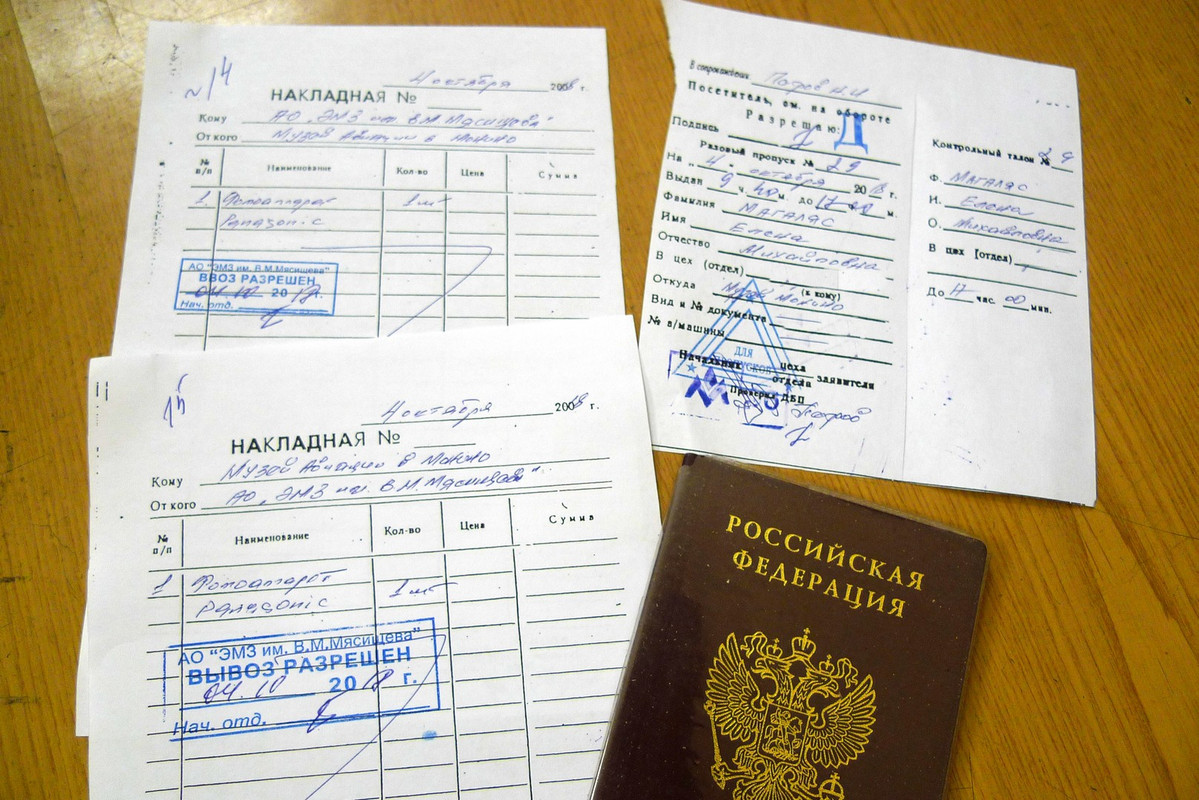 № 14
4 октября 2008 г.
НАКЛАДНАЯ №
Кому АО "ЭМЗ им. В.М.Мясищева"
От кого Музей Авиации в Монино
№ п/п Наименование Кол-во Цена Сумма
1 Фотоаппарат 1 шт
Panasonic
АО "ЭМЗ им. В.М.Мясищева"
ВВОЗ РАЗРЕШЕН
04.10 2018 г.
Нач. отд.
15
4 октября 2008 г.
НАКЛАДНАЯ №
Кому Музей Авиации в Монино
От кого АО "ЭМЗ им. В.М.Мясищева"
№ п/п Наименование Кол-во Цена Сумма
1 Фотоаппарат 1 шт
Panasonic
АО "ЭМЗ им. В.М.Мясищева"
ВЫВОЗ РАЗРЕШЕН
04.10 2018 г.
Нач. отд.
В сопровождении
Посетитель, см. на обороте
Разрешаю:
Д
Подпись
Разовый пропуск № 29
На "4" октября 2018 г.
Выдан 9 ч. м. до 17 м.
Фамилия Магаляс
Имя Елена
Отчество Михайловна
В цех (отдел)
(к кому)
Откуда Музей Монино
Вид и № документа
№ а/машины
ДЛЯ
ПРОПУСКОВ
Начальник цеха
отдела заявителя
Проверил ДБП
Контрольный талон № 29
Ф. Магаляс
И. Елена
О. Михайловна
В цех [отдел]
До 17 час. 00 мин.
РОССИЙСКАЯ
ФЕДЕРАЦИЯ